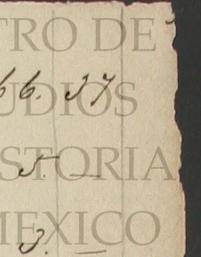 TRO DE
66. 37
UDIOS
5. —
ISTORIA
MEXICO
3. —